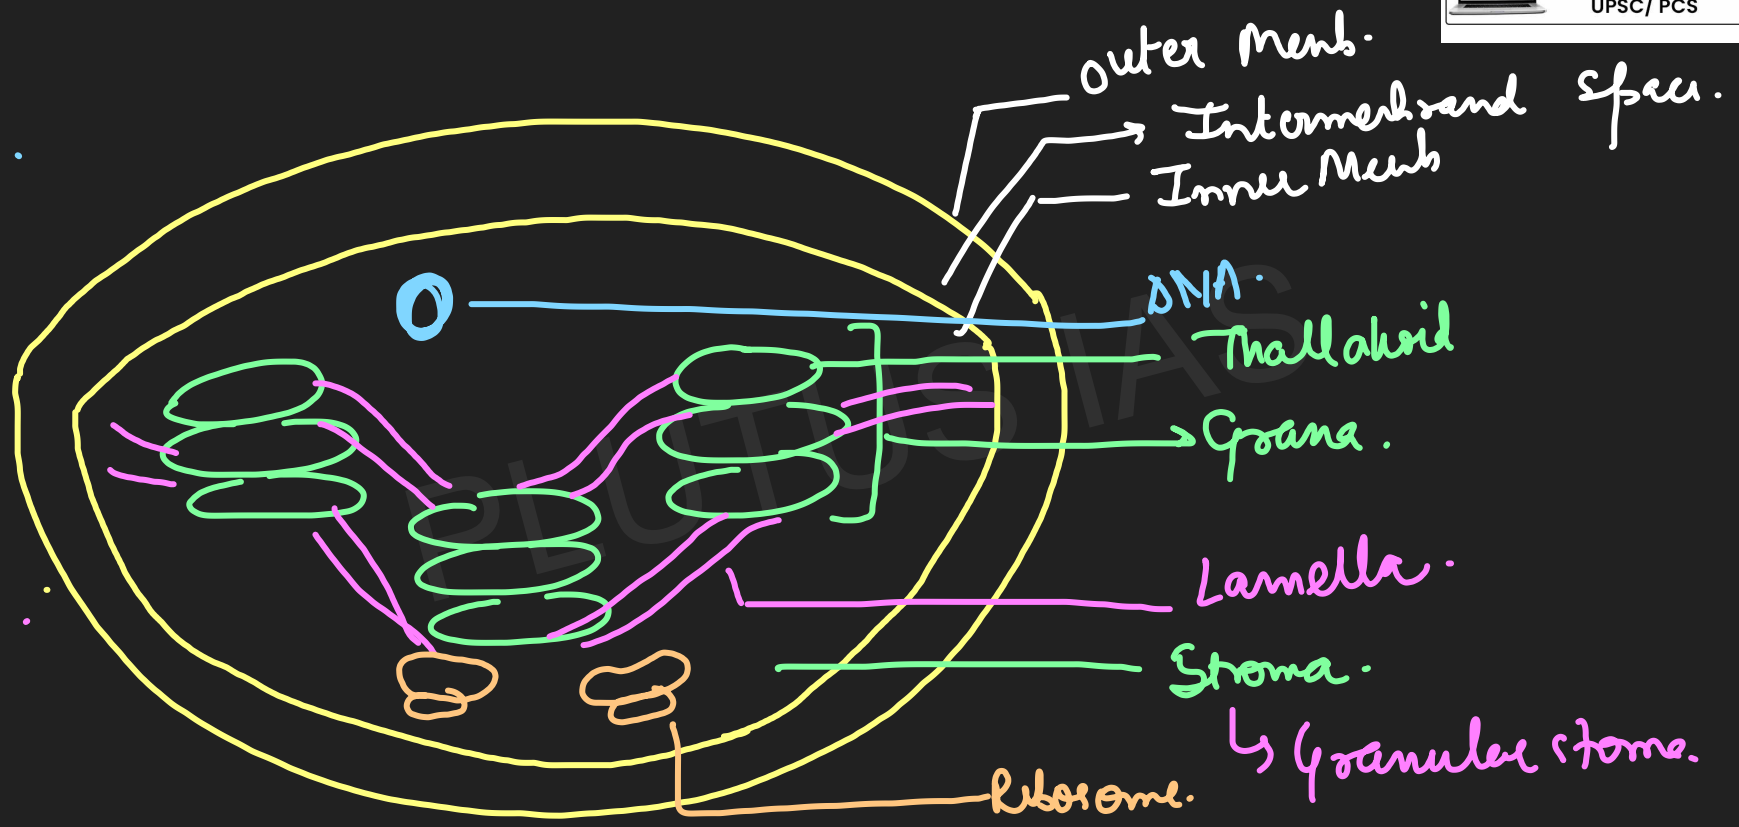 UPSC/ PCS
Outer Memb.
Intermembrand Space.
Inner Memb
DNA.
Thallakoid
Grana.
Lamella.
Stroma.
Granular stroma.
Ribosome.
PLUTUS IAS